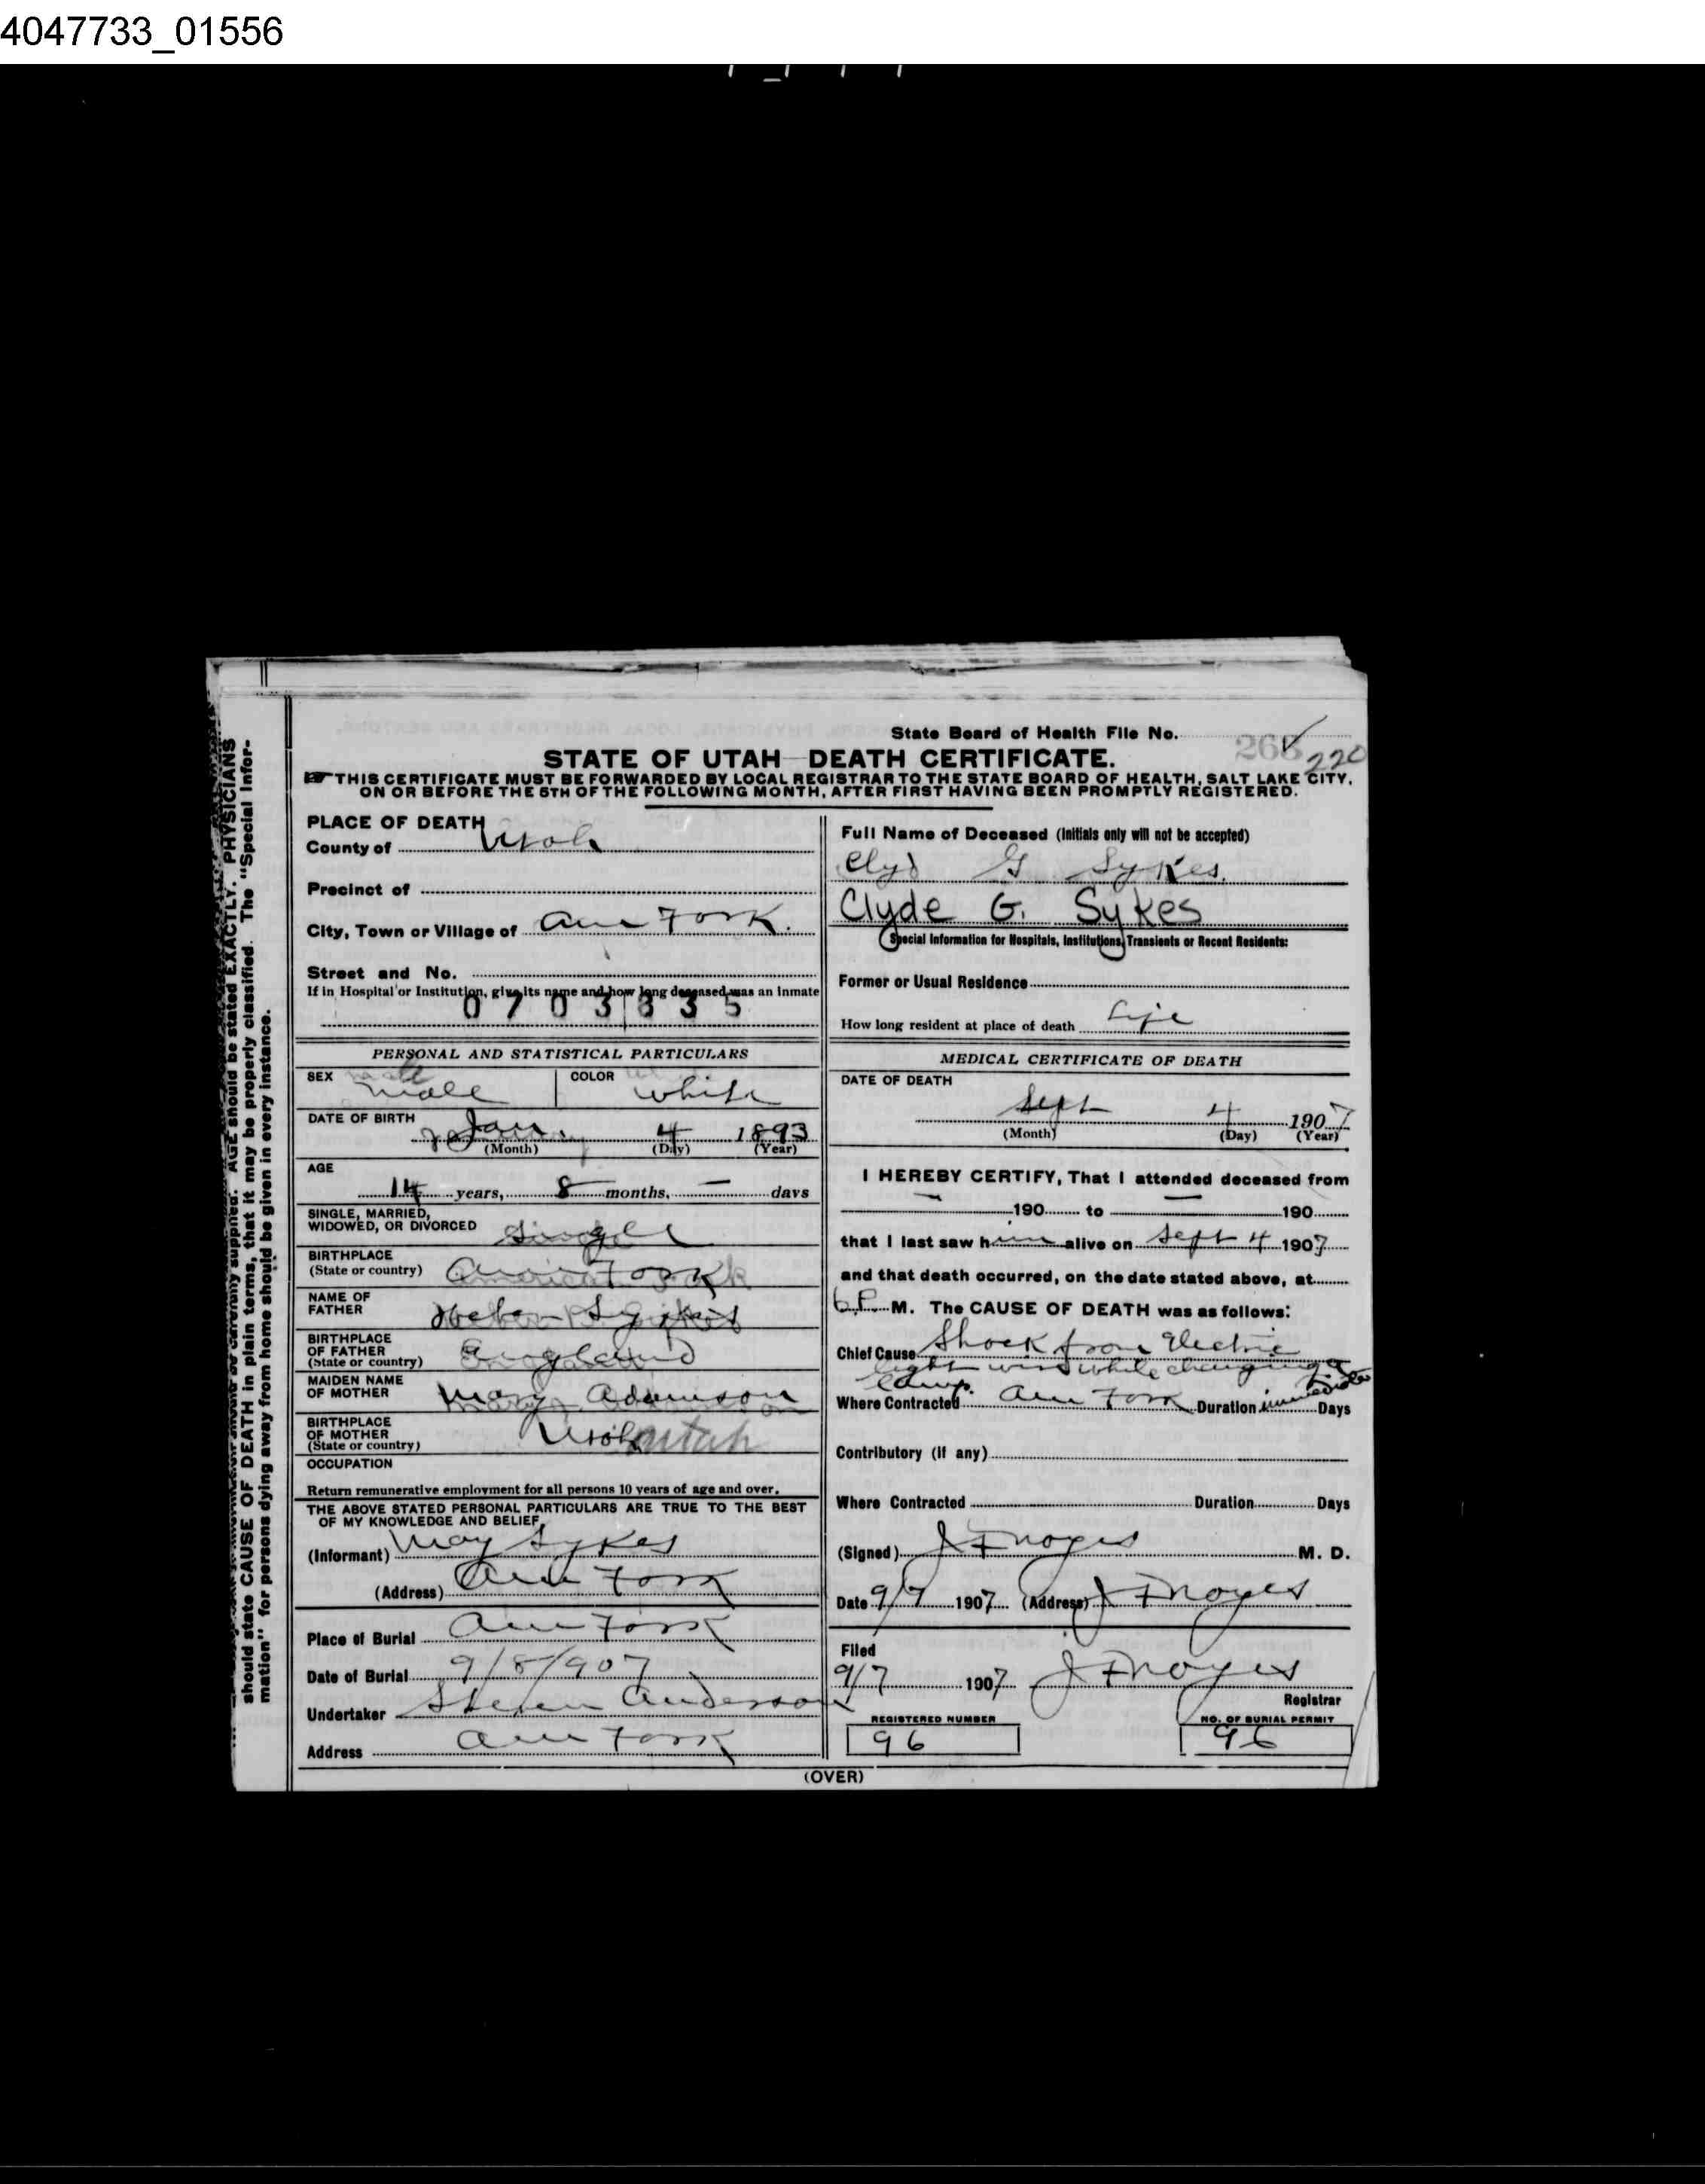 4047733_01556
State Board of Health File No. 268 220
STATE OF UTAH—DEATH CERTIFICATE.
THIS CERTIFICATE MUST BE FORWARDED BY LOCAL REGISTRAR TO THE STATE BOARD OF HEALTH, SALT LAKE CITY,
ON OR BEFORE THE 5TH OF THE FOLLOWING MONTH, AFTER FIRST HAVING BEEN PROMPTLY REGISTERED.
PLACE OF DEATH
County of Utah
Precinct of
City, Town or Village of Am Fork.
Street and No.
If in Hospital or Institution, give its name and how long deceased was an Inmate
0703835
PERSONAL AND STATISTICAL PARTICULARS
SEX Male COLOR White
DATE OF BIRTH Jan 4 1893
(Month) (Day) (Year)
AGE
14 years, 8 months, — days
SINGLE, MARRIED,
WIDOWED, OR DIVORCED Single
BIRTHPLACE
(State or country) American Fork
NAME OF
FATHER Heber Sykes
BIRTHPLACE
OF FATHER
(State or country) England
MAIDEN NAME
OF MOTHER Mary Adamson
BIRTHPLACE
OF MOTHER
(State or country) Utah Utah
OCCUPATION
Return remunerative employment for all persons 10 years of age and over.
THE ABOVE STATED PERSONAL PARTICULARS ARE TRUE TO THE BEST
OF MY KNOWLEDGE AND BELIEF.
(Informant) May Sykes
(Address) Am Fork
Place of Burial Am Fork
Date of Burial 9/8/907
Undertaker Steven Anderson
Address Am Fork
Full Name of Deceased (Initials only will not be accepted)
Clyd G Sykes.
Clyde G. Sykes
Special Information for Hospitals, Institutions, Transients or Recent Residents:
Former or Usual Residence
How long resident at place of death Life
MEDICAL CERTIFICATE OF DEATH
DATE OF DEATH
Sept 4 1907
(Month) (Day) (Year)
I HEREBY CERTIFY, That I attended deceased from
— 190 to — 190
that I last saw him alive on Sept 4 1907
and that death occurred, on the date stated above, at
6 P. M. The CAUSE OF DEATH was as follows:
Chief Cause Shock from Electric
light wire while changing a
lamp.
Where Contracted Am Fork Duration immediate Days
Contributory (if any)
Where Contracted Duration Days
(Signed) J F Noyes M. D.
Date 9/7 1907 (Address) J F Noyes
Filed
9/7 1907 J F Noyes
Registrar
REGISTERED NUMBER
96
NO. OF BURIAL PERMIT
96
(OVER)
AGE should be stated EXACTLY. PHYSICIANS
should state CAUSE OF DEATH in plain terms, that it may be properly classified. The "Special Infor-
mation" for persons dying away from home should be given in every instance.